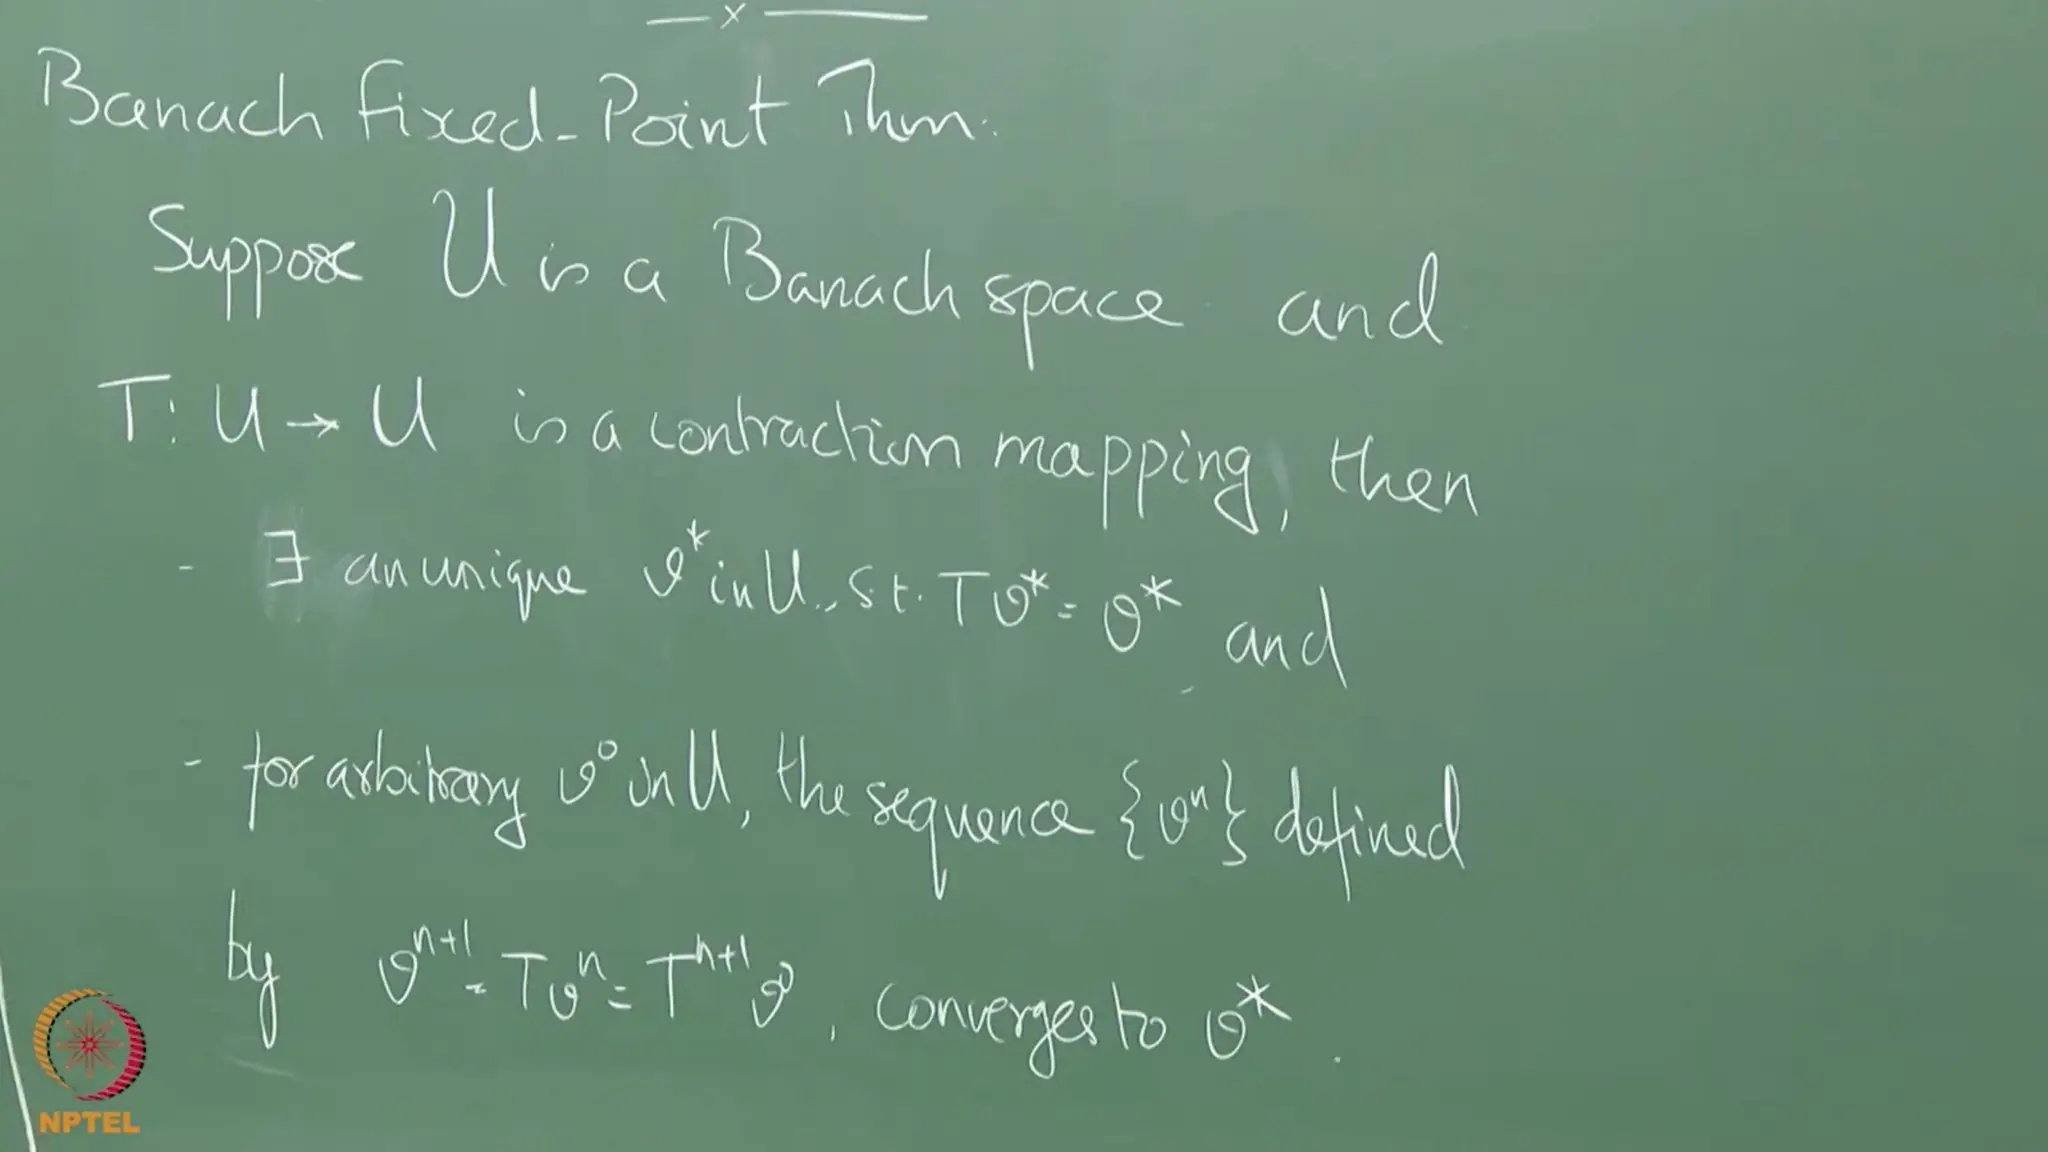 — x —
Banach Fixed-Point Thm.
Suppose U is a Banach space and
T: U → U is a contraction mapping, then
- ∃ an unique v* in U, s.t. Tv* = v* and
- for arbitrary v⁰ in U, the sequence {vⁿ} defined
by vⁿ⁺¹ = Tvⁿ = Tⁿ⁺¹v⁰, converges to v*.
NPTEL